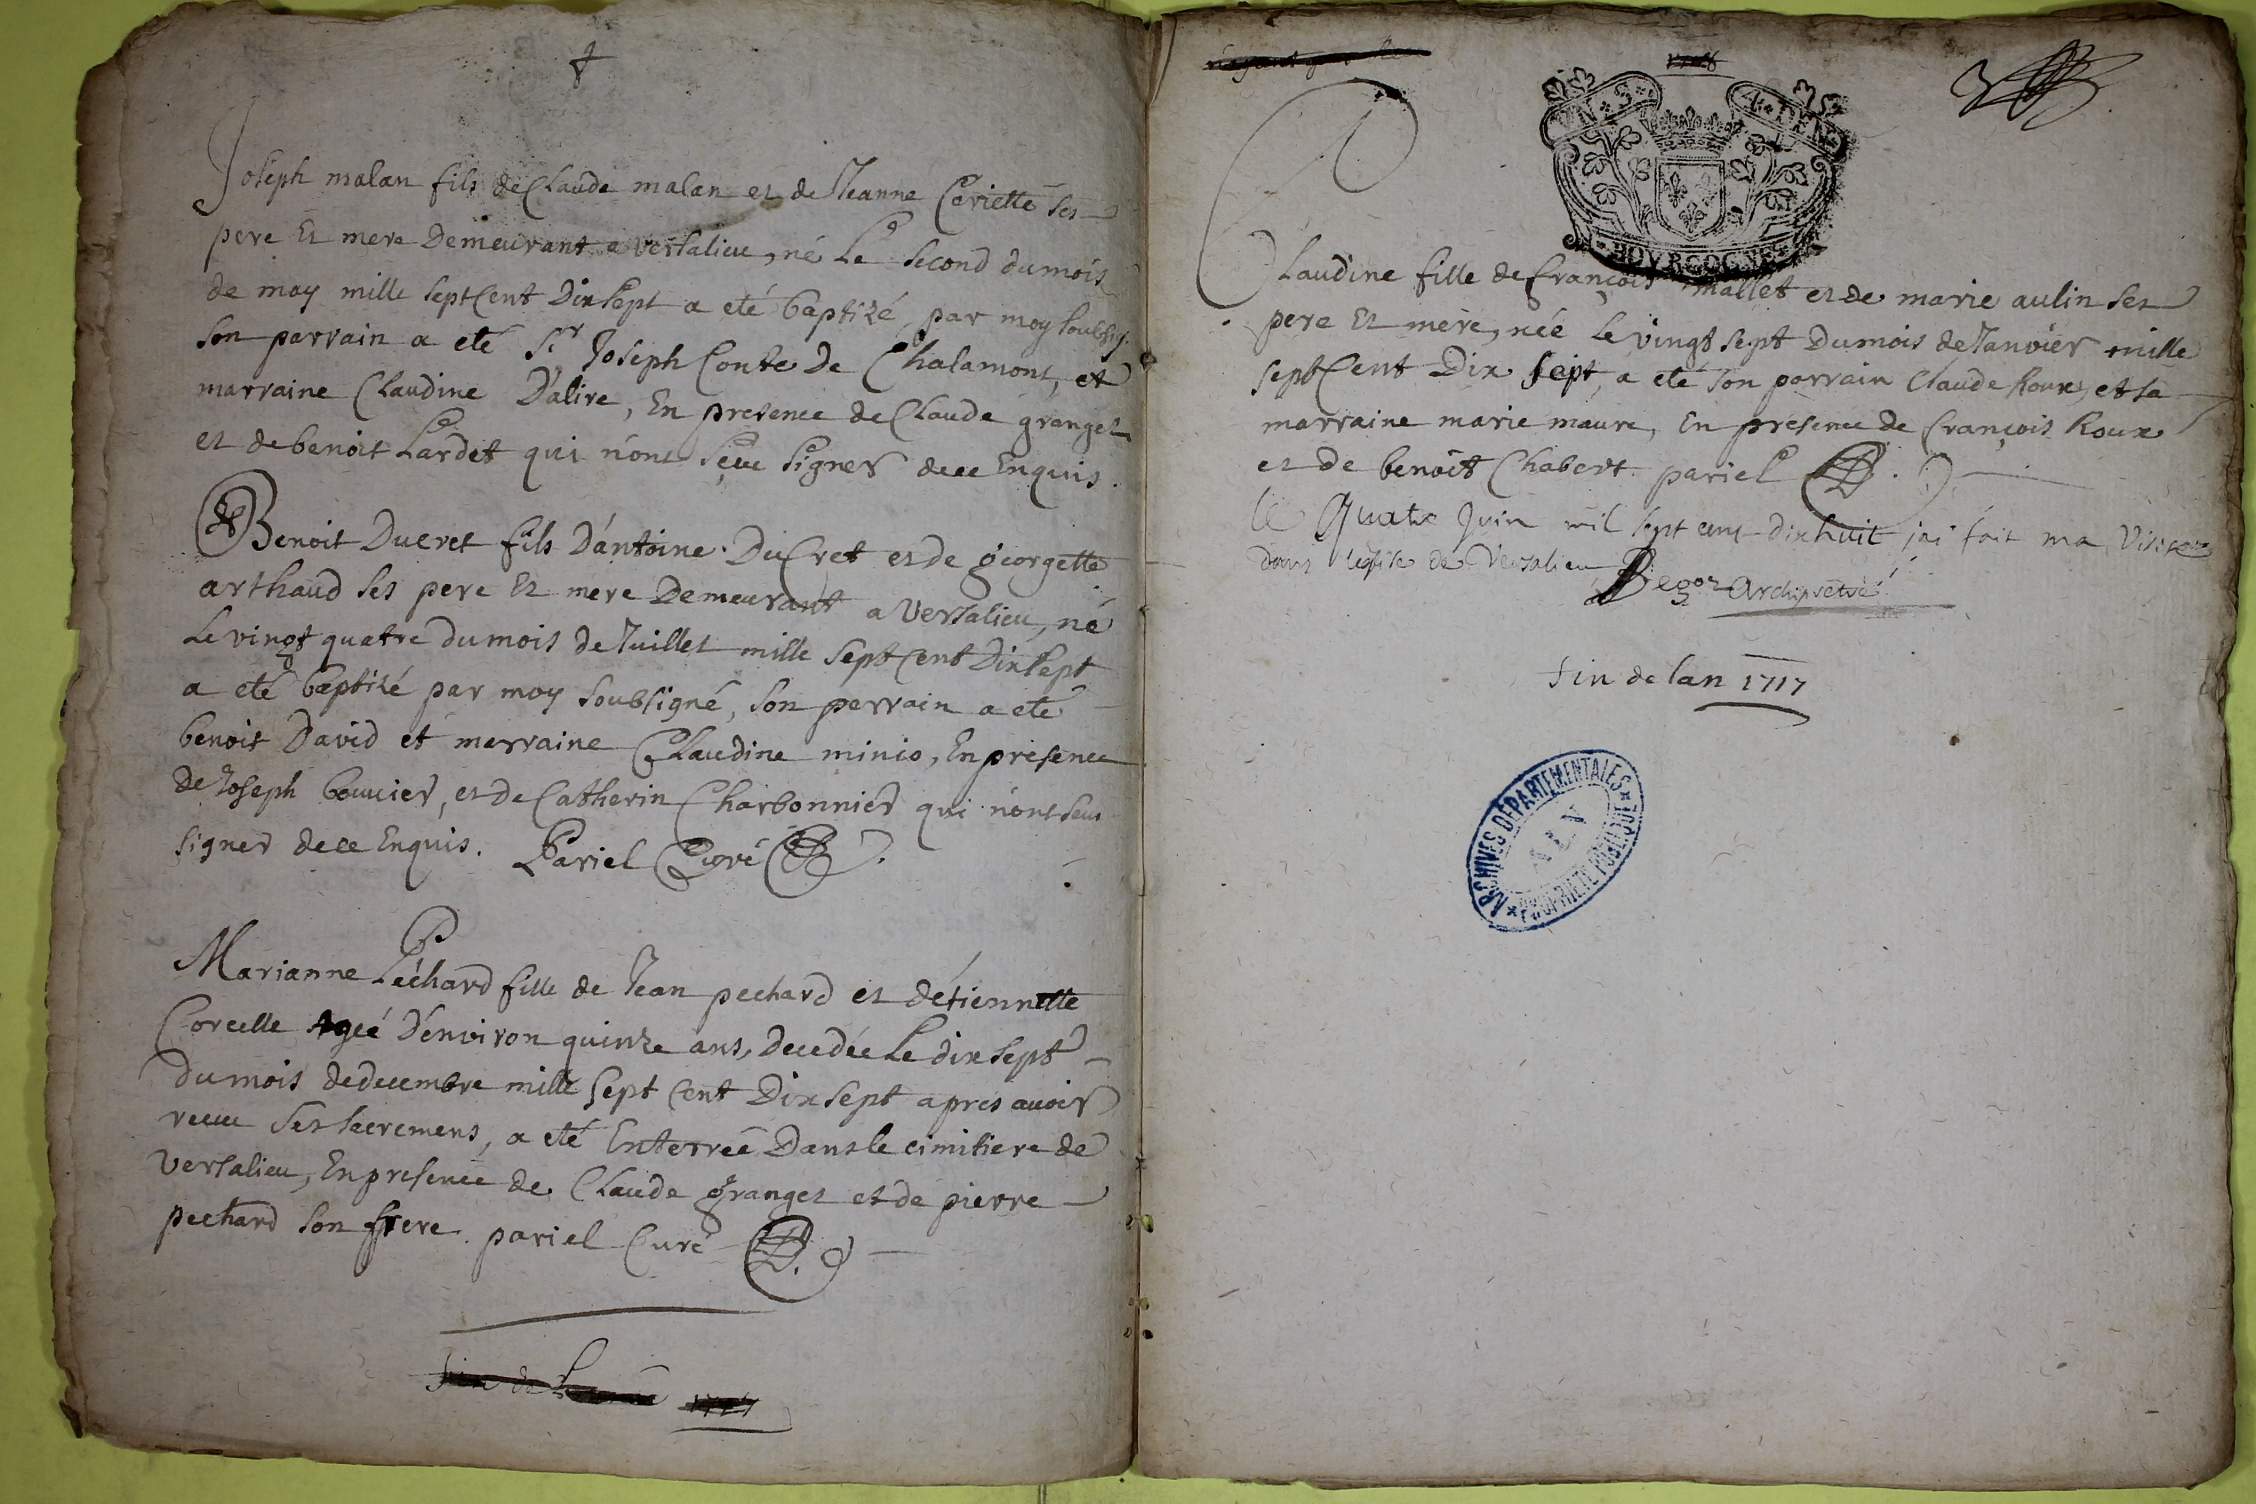 Joseph malan fils de Claude malan et de Jeanne Ceriette ses
pere Et mere Demeurant a versalieu, né Le second du mois
de may mille sept Cent Dix sept a eté baptizé par moy soubsig.
son parrain a eté Sr Joseph Conte de Chalamont, et
marraine Claudine D'alire, En presence de Claude granget
et de benoit Lardet qui n'ont sceu signer de ce Enquis.
Benoit Ducret fils D'antoine DuCret et de georgette
arthaud ses pere Et mere Demeurant a Versalieu, né
Le vingt quatre du mois de Juillet mille sept Cent Dix sept
a eté baptizé par moy soubsigné, son parrain a eté
benoit David et marraine Claudine minio, En presence
de Joseph bouvier, et de Catherin Charbonnier qui n'ont seu
signer de ce Enquis. Pariel Curé
Marianne Péchard fille de Jean pechard et d'étiennette
Corcelle Ageé D'environ quinze ans, decedée Le dix sept
du mois de decembre mille sept Cent Dix sept apres avoir
receu ses sacremens, a eté Enterreé Dans le cimitiere de
versalieu, En presence de Claude granget et de pierre
pechard son frere. pariel Curé
fin de 1717
1718
VN·S· 4·DEN
BOVRGOGNE
Claudine fille de françois mallet et de marie aulin ses
pere Et mere, née Le vingt sept Du mois de Janvier mille
sept Cent Dix sept, a eté son parrain Claude Roux, et sa
marraine marie maure, En presence de françois Roux
et de benoit Chabert. pariel
le quatre Juin mil sept cent dix huit j'ai fait ma Visite
dans leglise de Versalieu
Archiprêtre
fin de lan 1717
ARCHIVES DÉPARTEMENTALES
AIN
PROPRIÉTÉ PUBLIQUE